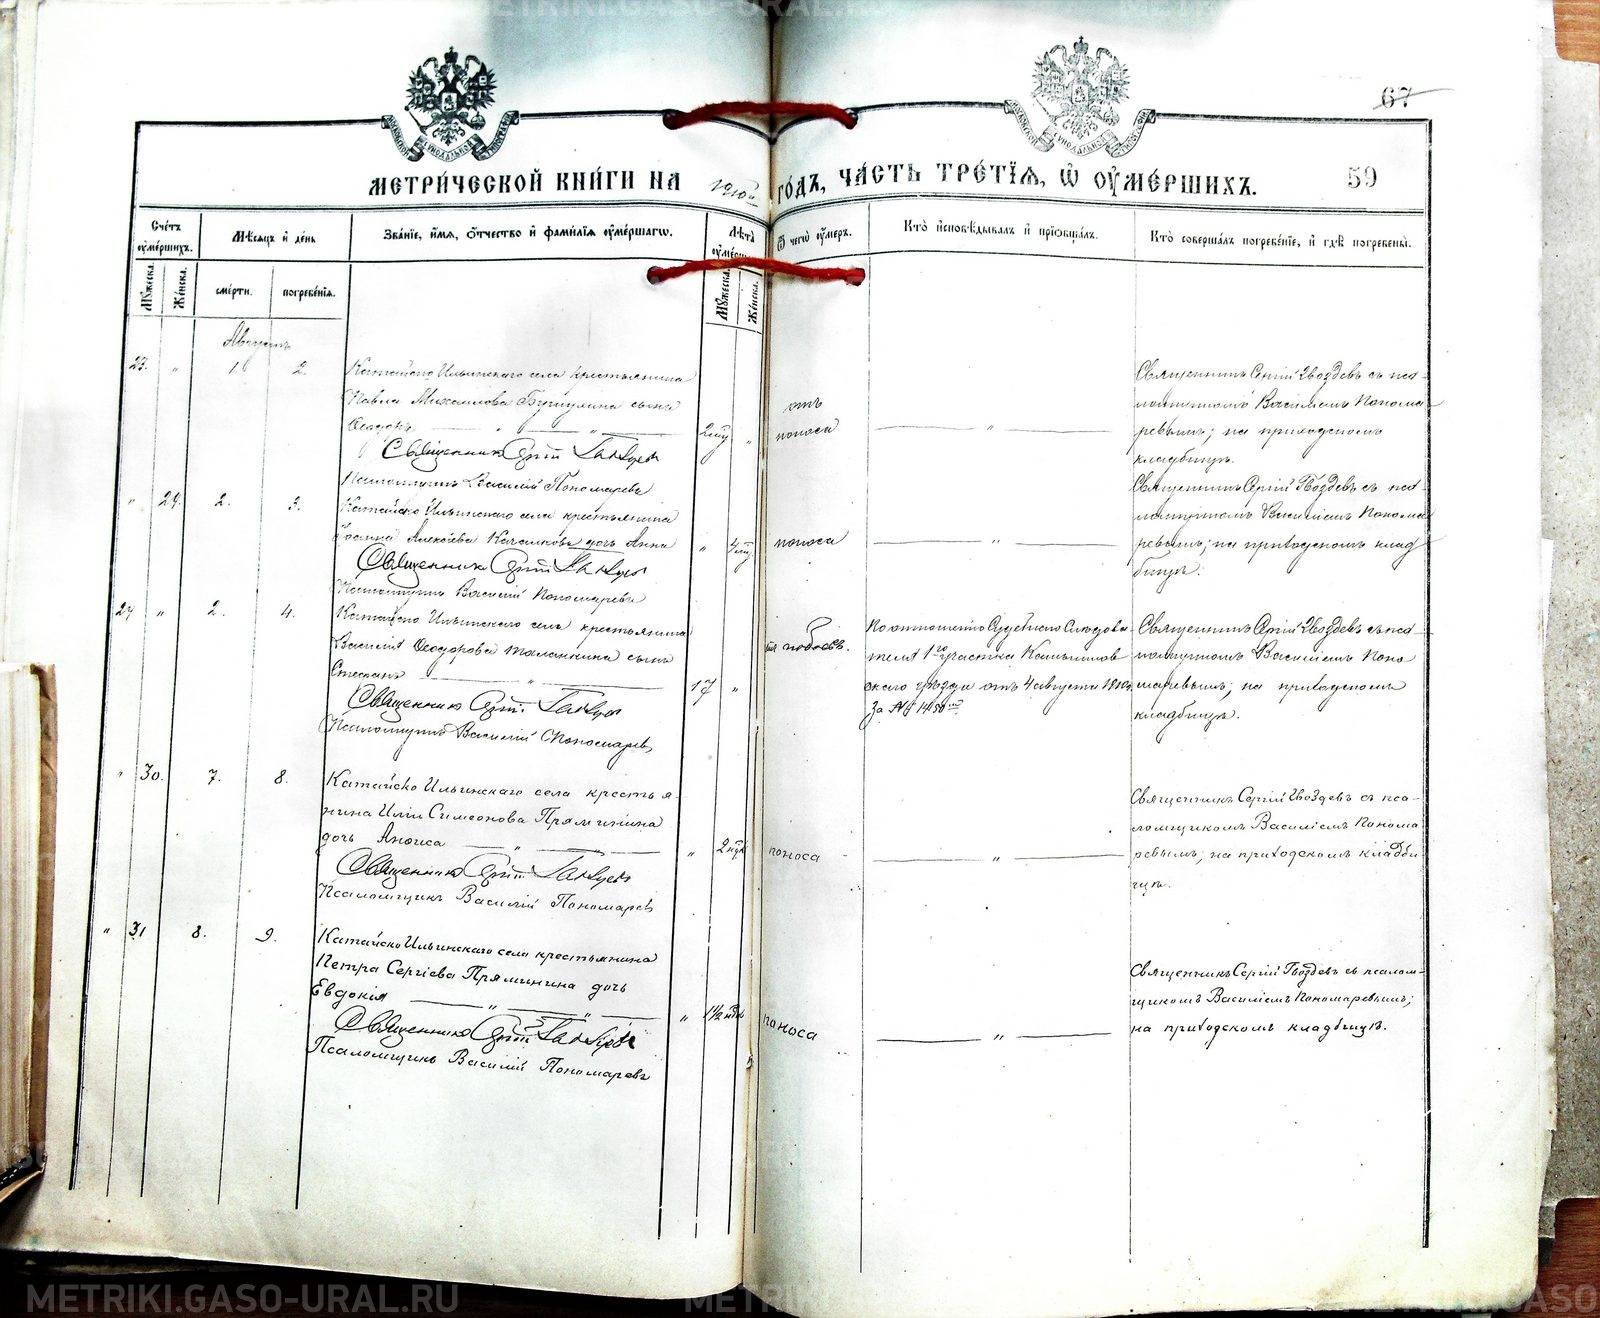 METRIKI.GASO-URAL.RU
67
59
МЕТРИ́ЧЕСКОЙ КНИ́ГИ НА 1910й ГО́ДЪ, ЧА́СТЬ ТРЕ́ТІЯ, Ѿ ОУМЕ́РШИХЪ.
Сче́тъ оуме́ршихъ.
Мꙋ́жеска.
Же́нска.
Мѣ́сяцъ и҆ де́нь
сме́рти.
погребе́нїя.
Зва́нїе, и҆́мя, о҆́тчество и҆ фами́лїя оуме́ршагѡ.
Лѣ́та
Мꙋ́жеска.
Же́нска.
Ѿ чегѡ̀ оу́меръ.
Кто̀ и҆сповѣ́дывалъ и҆ прїѡбща́лъ.
Кто̀ соверша́лъ погребе́нїе, и҆ гдѣ̀ погребены̀.
Августъ
23. " 1 2.
Катайско Ильинскаго села крестьянина
Павла Михаилова сынъ
Ѳеодоръ " "
Священникъ Сергій Гвоздев
Псаломщикъ Василій Пономаревъ
"
отъ
поноса
"
Священникъ Сергій Гвоздевъ съ пса-
ломщикомъ Василіемъ Понома
ревымъ; на приходскомъ
кладбищѣ.
" 29. 2. 3.
Катайско Ильинскаго села крестьянина
Іоанна Алексѣева дочь Анна
Священникъ Сергій Гвоздев
Псаломщикъ Василій Пономаревъ
"
поноса
"
Священникъ Сергій Гвоздевъ съ пса-
ломщикомъ Василіемъ Понома
ревымъ; на приходскомъ клад
бищѣ.
24 " 2. 4.
Катайско Ильинскаго села крестьянина
Василія Ѳеодорова сынъ
Стефанъ "
Священникъ Сергій Гвоздев
Псаломщикъ Василій Пономаревъ
17 "
побоевъ.
По отношенію Судебнаго Слѣдова-
теля 1го участка Камышлов
скаго уѣзда отъ 4 августа 1910г.
За №
Священникъ Сергій Гвоздевъ съ пса
ломщикомъ Василіемъ Поно
маревымъ; на приходскомъ
кладбищѣ.
" 30. 7. 8.
Катайско Ильинскаго села крестья-
нина Иліи Симеонова Прямичкина
дочь Анѳиса "
Священникъ Сергій Гвоздев
Псаломщикъ Василій Пономаревъ
" 2 нед
поноса
"
Священникъ Сергій Гвоздевъ съ пса-
ломщикомъ Василіемъ Понома
ревымъ; на приходскомъ кладби-
щѣ.
" 31 8. 9.
Катайско Ильинскаго села крестьянина
Петра Сергіева дочь
Евдокія " "
Священникъ Сергій Гвоздевъ
Псаломщикъ Василій Пономаревъ
" 1½
поноса
"
Священникъ Сергій Гвоздевъ съ псалом-
щикомъ Василіемъ Пономаревымъ;
на приходскомъ кладбищѣ.
METRIKI.GASO-URAL.RU
METRIKI.GASO